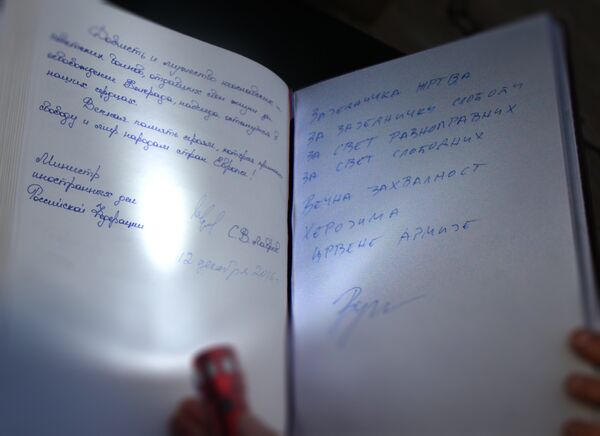 Доблесть и мужество
советских воинов, отдавших свои жизни за
освобождение Белграда, навсегда останутся в
наших сердцах.
Вечная память героям, которые принесли
свободу и мир народам стран Европы!
Министр
иностранных дел
Российской Федерации
С.В. Лавров
12 декабря 2016г.
ЗАЈЕДНИЧКА ЖРТВА
ЗА ЗАЈЕДНИЧКУ СЛОБОДУ
ЗА СВЕТ РАВНОПРАВНИХ
ЗА СВЕТ СЛОБОДНИХ
ВЕЧНА ЗАХВАЛНОСТ
ХЕРОЈИМА
ЦРВЕНЕ АРМИЈЕ